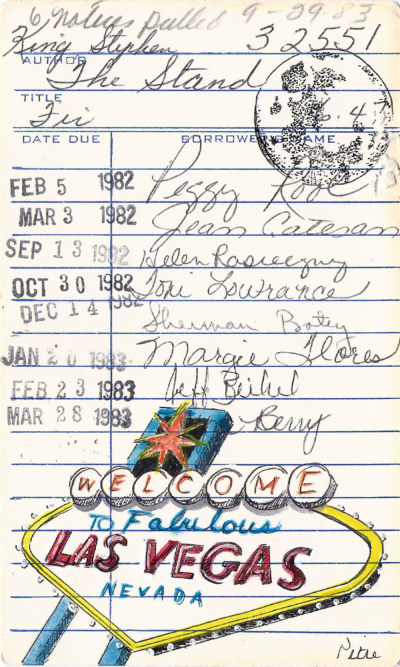 6 notices pulled 9-29-83
King Stephen 32551
AUTHOR
The Stand
TITLE
Fic
6.4
DATE DUE BORROWER'S NAME
FEB 5 1982 Peggy
MAR 3 1982 Jean Catesan
SEP 13 1982 Helen
OCT 30 1982 Toni Lowrance
DEC 14 1982 Sherman
JAN 20 1983 Margie Flores
FEB 23 1983 Jeff
MAR 28 1983 Berry
WELCOME
TO Fabulous
LAS VEGAS
NEVADA
Petre